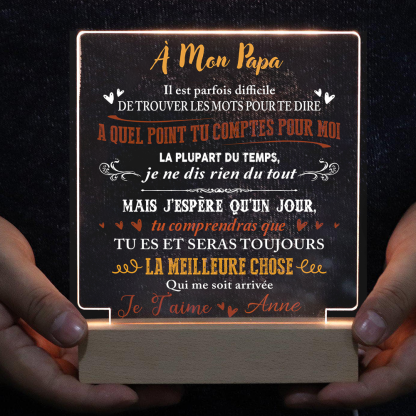 À Mon Papa
Il est parfois difficile
DE TROUVER LES MOTS POUR TE DIRE
A QUEL POINT TU COMPTES POUR MOI
LA PLUPART DU TEMPS,
je ne dis rien du tout
MAIS J'ESPÈRE QU'UN JOUR,
tu comprendras que
TU ES ET SERAS TOUJOURS
LA MEILLEURE CHOSE
Qui me soit arrivée
Je T'aime Anne